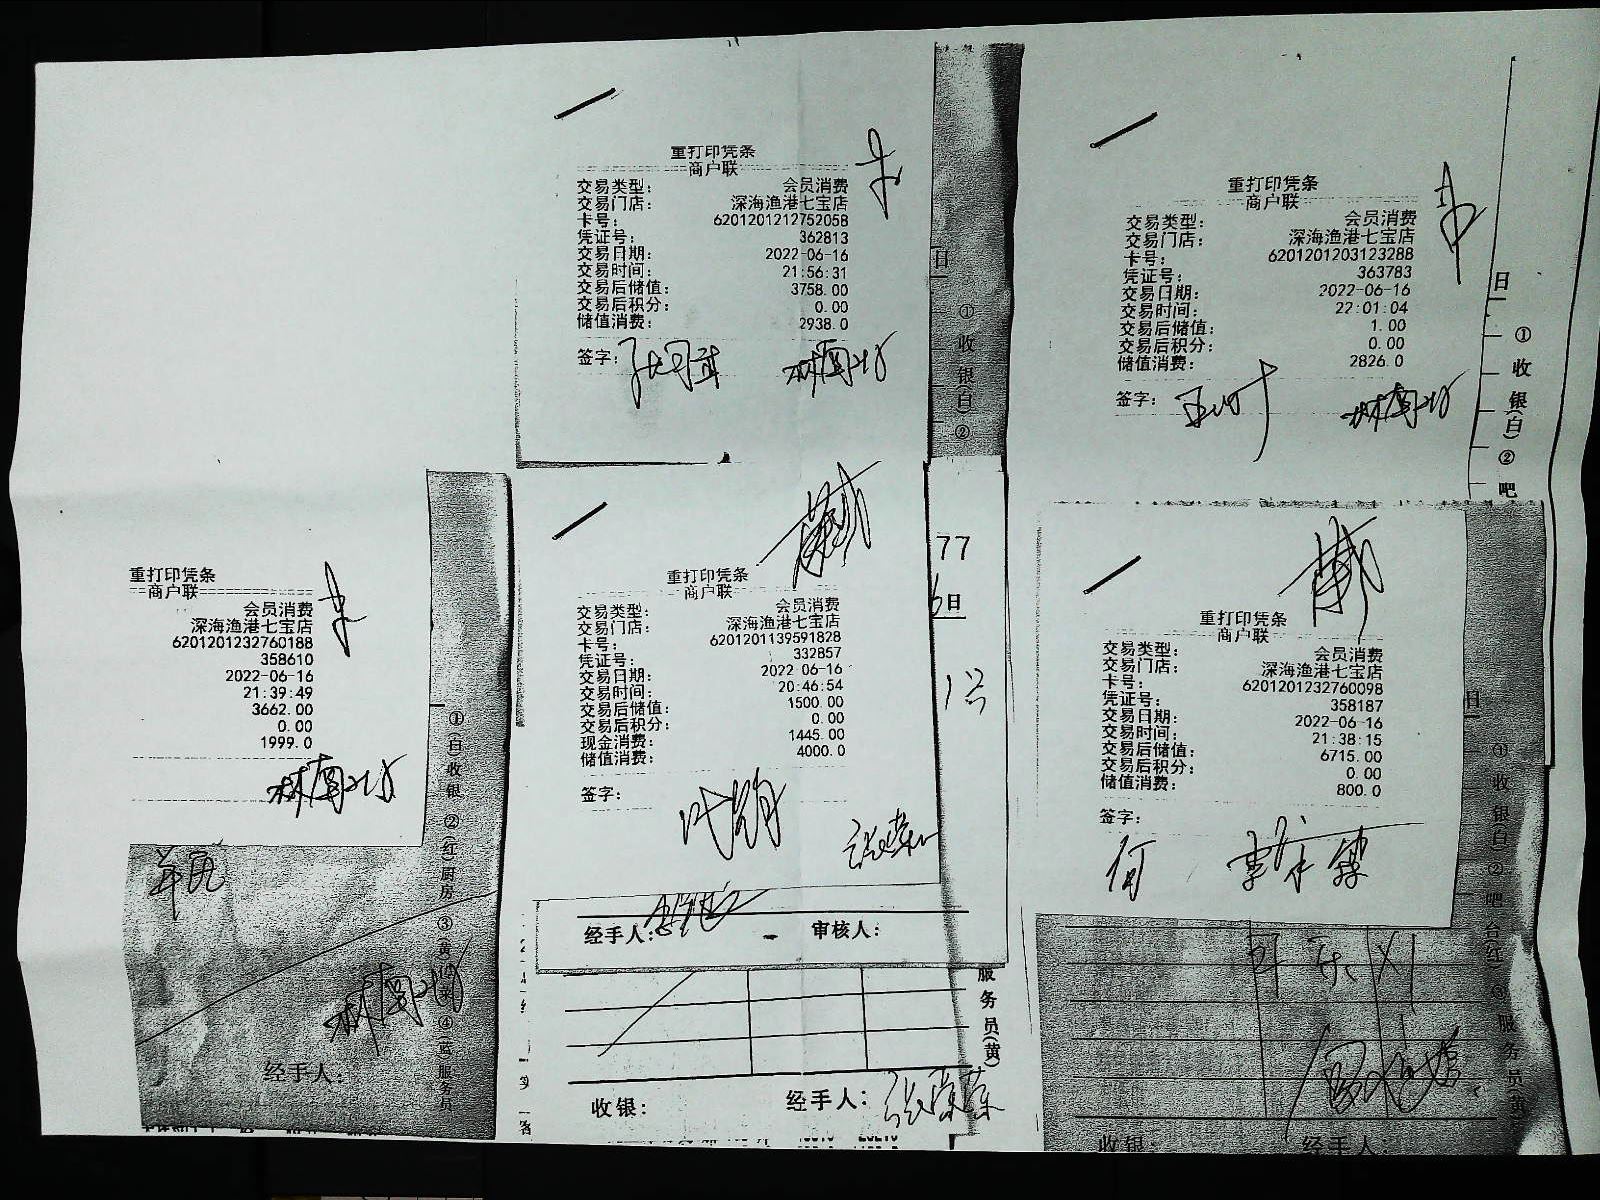 重打印凭条
商户联
交易类型： 会员消费
交易门店： 深海渔港七宝店
卡号： 6201201212752058
凭证号： 362813
交易日期： 2022-06-16
交易时间： 21:56:31
交易后储值： 3758.00
交易后积分： 0.00
储值消费： 2938.0
签字：
日
①收银(白)②
重打印凭条
商户联
交易类型： 会员消费
交易门店： 深海渔港七宝店
卡号： 6201201203123288
凭证号： 363783
交易日期： 2022-06-16
交易时间： 22:01:04
交易后储值： 1.00
交易后积分： 0.00
储值消费： 2826.0
签字：
日
①收银(白)②吧
重打印凭条
商户联
会员消费
深海渔港七宝店
6201201232760188
358610
2022-06-16
21:39:49
3662.00
0.00
1999.0
经手人：
①(白)收银②(红)厨房③黄
④(蓝)服务员
重打印凭条
商户联
交易类型： 会员消费
交易门店： 深海渔港七宝店
卡号： 6201201139591828
凭证号： 332857
交易日期： 2022-06-16
交易时间： 20:46:54
交易后储值： 1500.00
交易后积分： 0.00
现金消费： 1445.00
储值消费： 4000.0
签字：
77
6日
经手人： 审核人：
服务员(黄)
收银： 经手人：
重打印凭条
商户联
交易类型： 会员消费
交易门店： 深海渔港七宝店
卡号： 6201201232760098
凭证号： 358187
交易日期： 2022-06-16
交易时间： 21:38:15
交易后储值： 6715.00
交易后积分： 0.00
储值消费： 800.0
签字：
何
日
①收银白②吧台(红)
服务员黄
收银： 经手人：